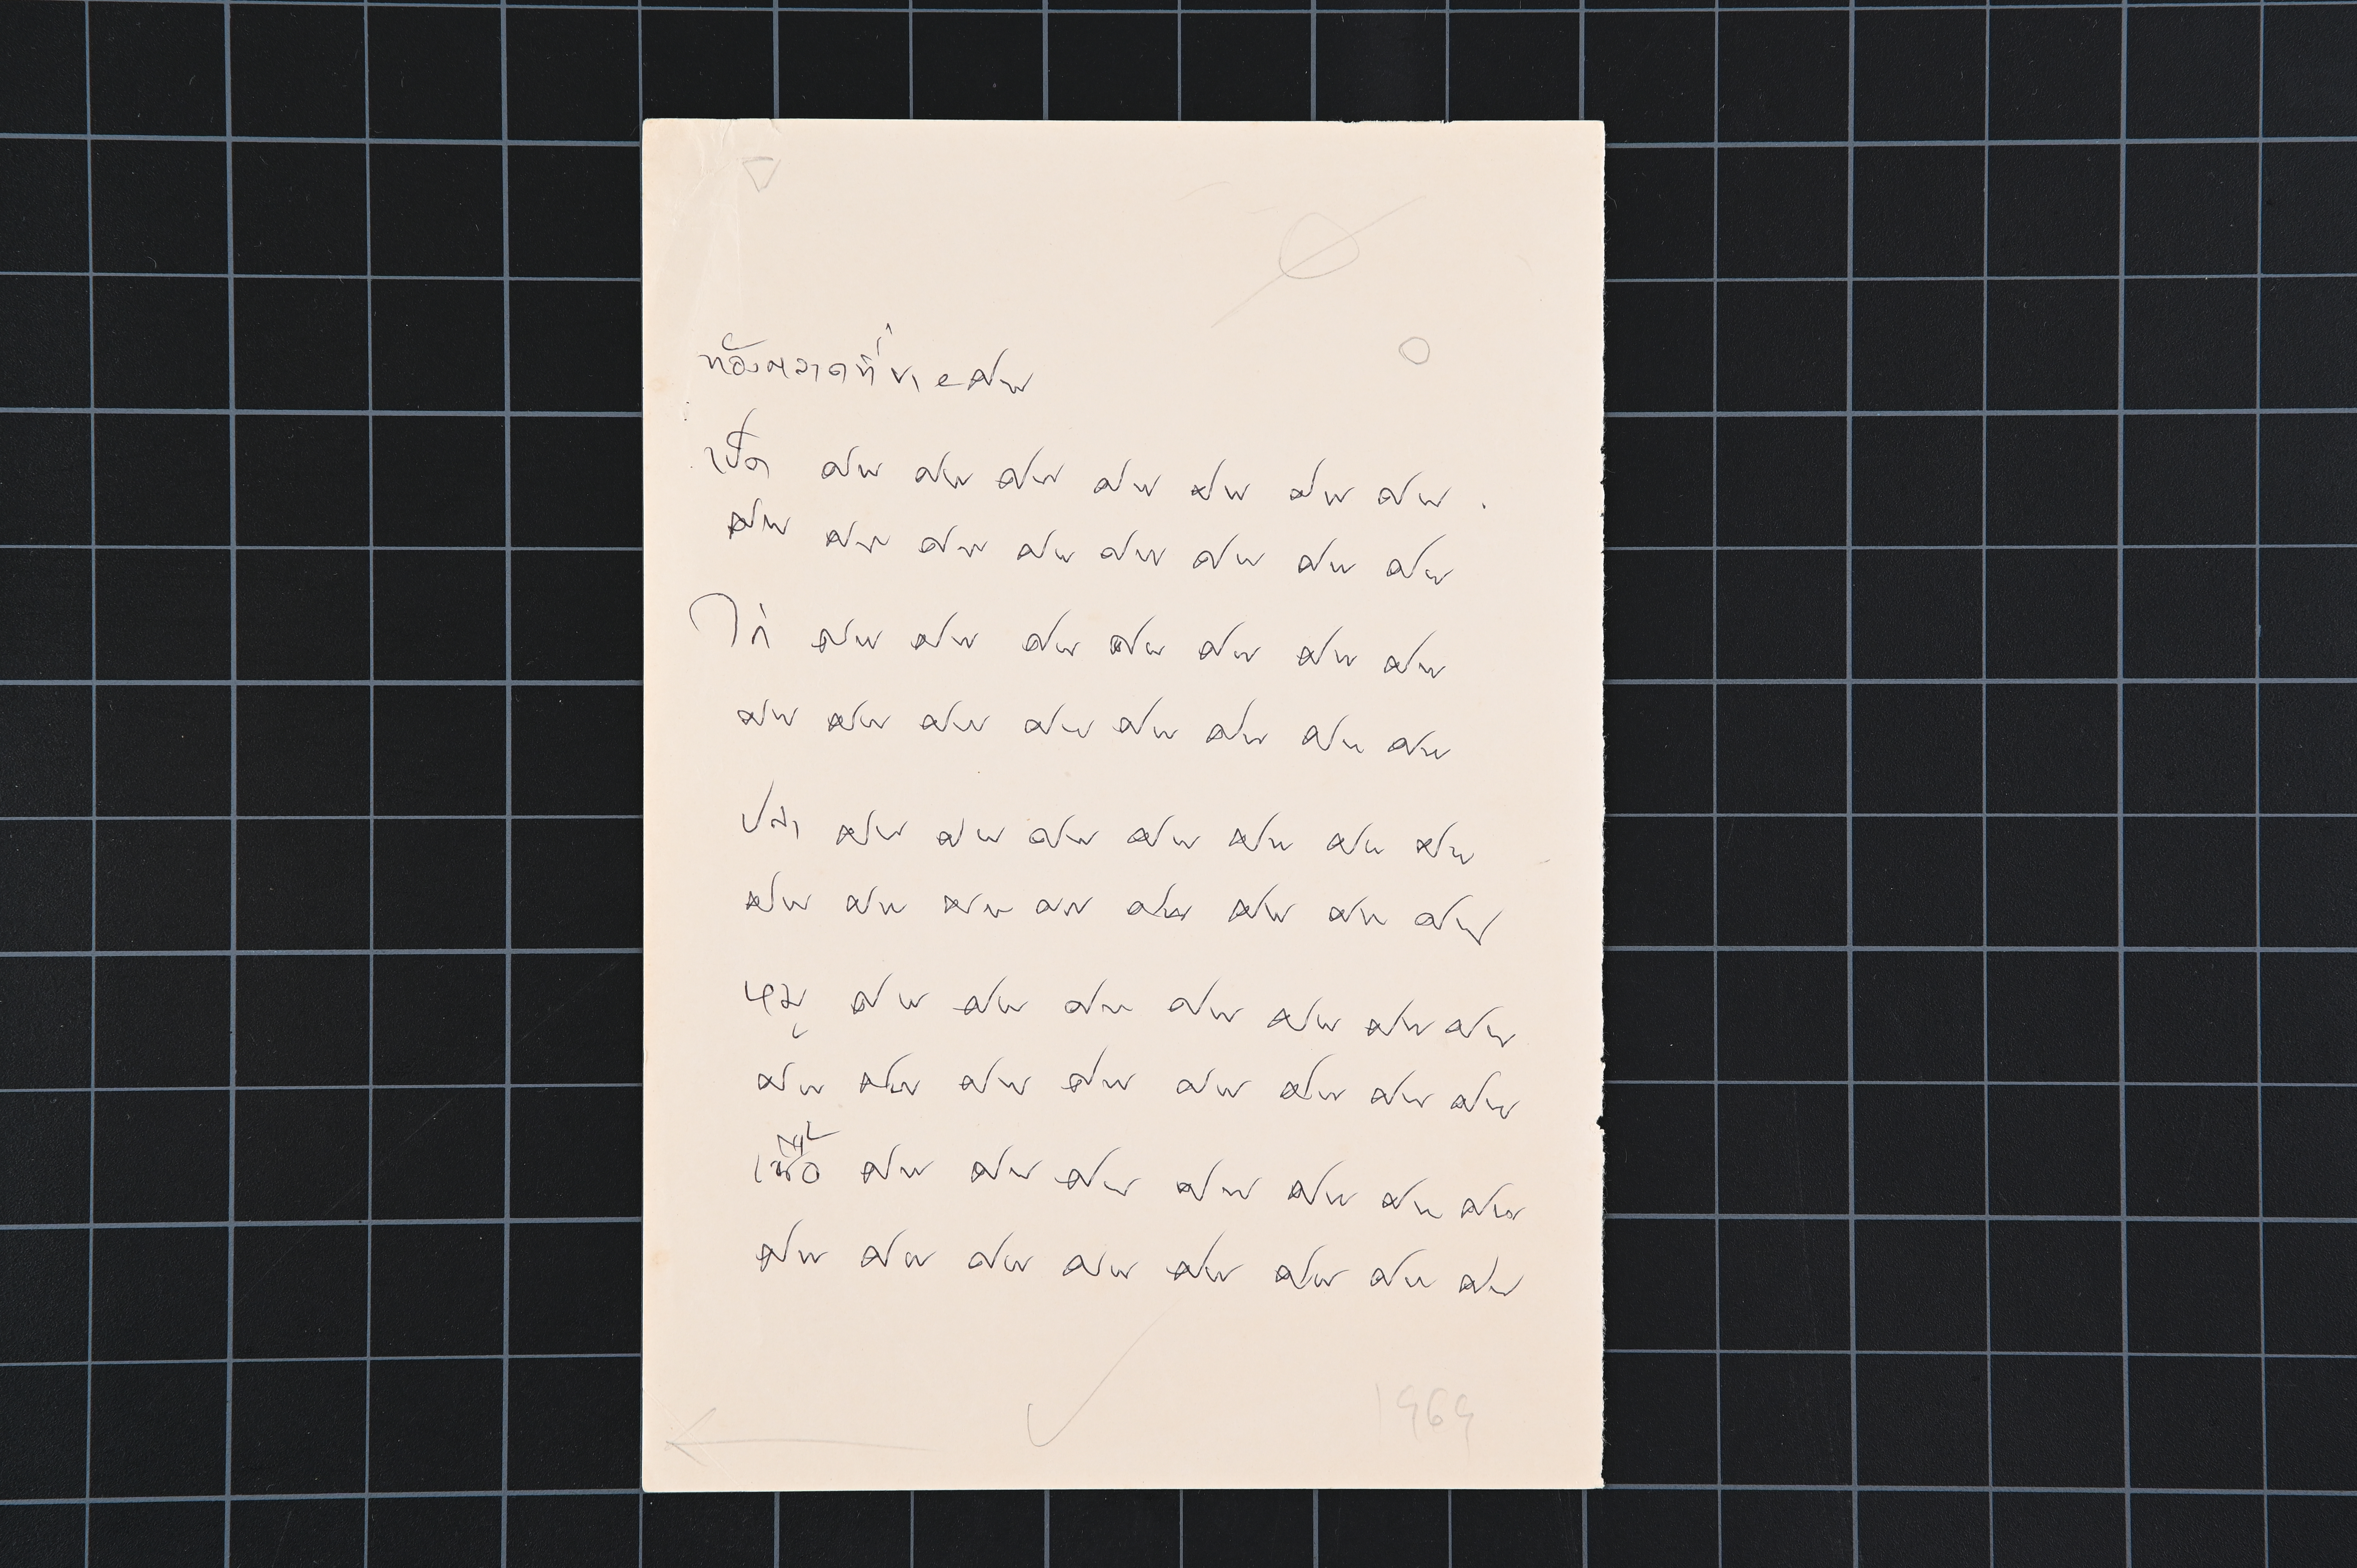 ท้องตลาดที่ขายศพ
เป็ด ศพ ศพ ศพ ศพ ศพ ศพ ศพ
ศพ ศพ ศพ ศพ ศพ ศพ ศพ ศพ
ไก่ ศพ ศพ ศพ ศพ ศพ ศพ ศพ
ศพ ศพ ศพ ศพ ศพ ศพ ศพ ศพ
ปลา ศพ ศพ ศพ ศพ ศพ ศพ ศพ
ศพ ศพ ศพ ศพ ศพ ศพ ศพ ศพ
หมู ศพ ศพ ศพ ศพ ศพ ศพ ศพ
ศพ ศพ ศพ ศพ ศพ ศพ ศพ ศพ
เนื้อ ศพ ศพ ศพ ศพ ศพ ศพ ศพ
ศพ ศพ ศพ ศพ ศพ ศพ ศพ ศพ
1969